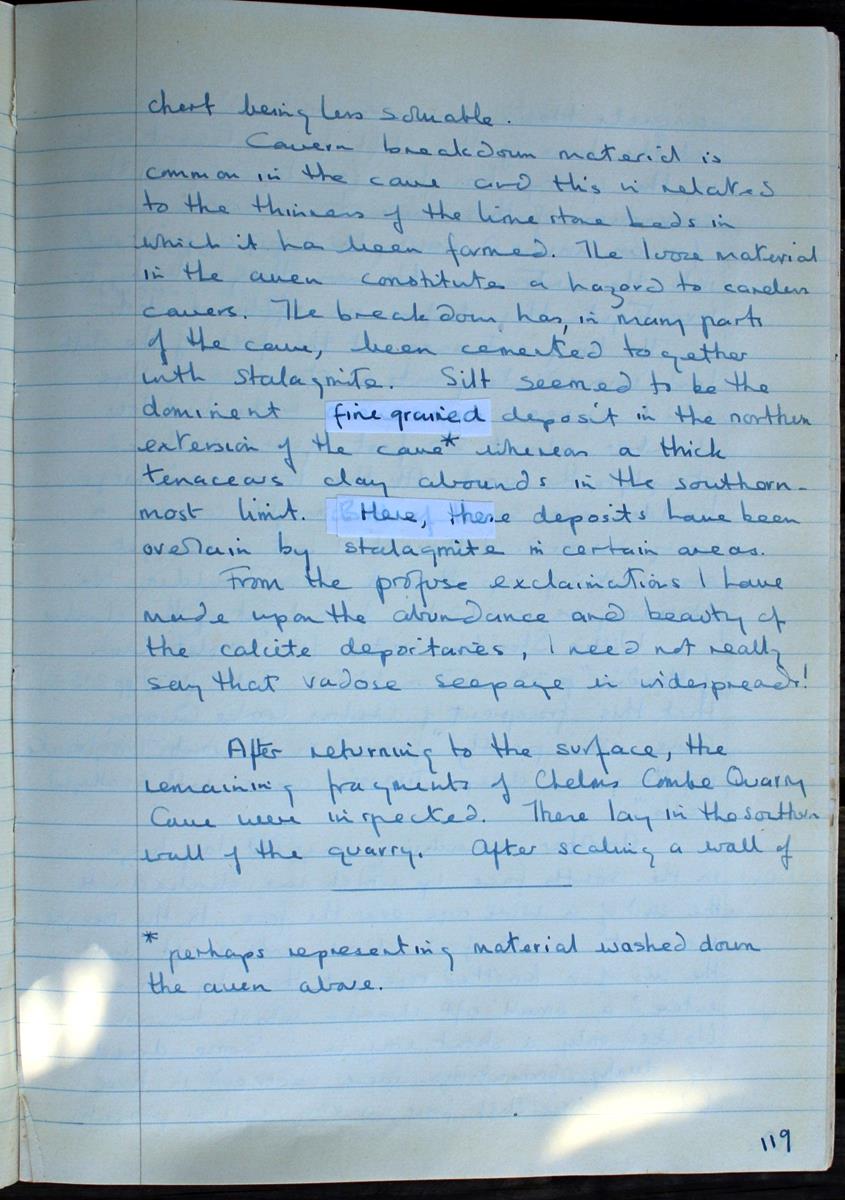 chert being less soluable.
Cavern breakdown material is
common in the cave and this is related
to the thinness of the limestone beds in
which it has been formed. The loose material
in the aven constitutes a hazard to careless
cavers. The breakdown has, in many parts
of the cave, been cemented together
with stalagmite. Silt seemed to be the
dominent fine grained deposit in the northern
extension of the cave* whereas a thick
tenaceous clay abounds in the southern-
most limit. Here, these deposits have been
overlain by stalagmite in certain areas.
From the profuse exclaimations I have
made upon the abundance and beauty of
the calcite depositaries, I need not really
say that vadose seepage is widespread!
After returning to the surface, the
remaining fragments of Chelms Combe Quarry
Cave were inspected. These lay in the southern
wall of the quarry. After scaling a wall of
* perhaps representing material washed down
the aven above.
119